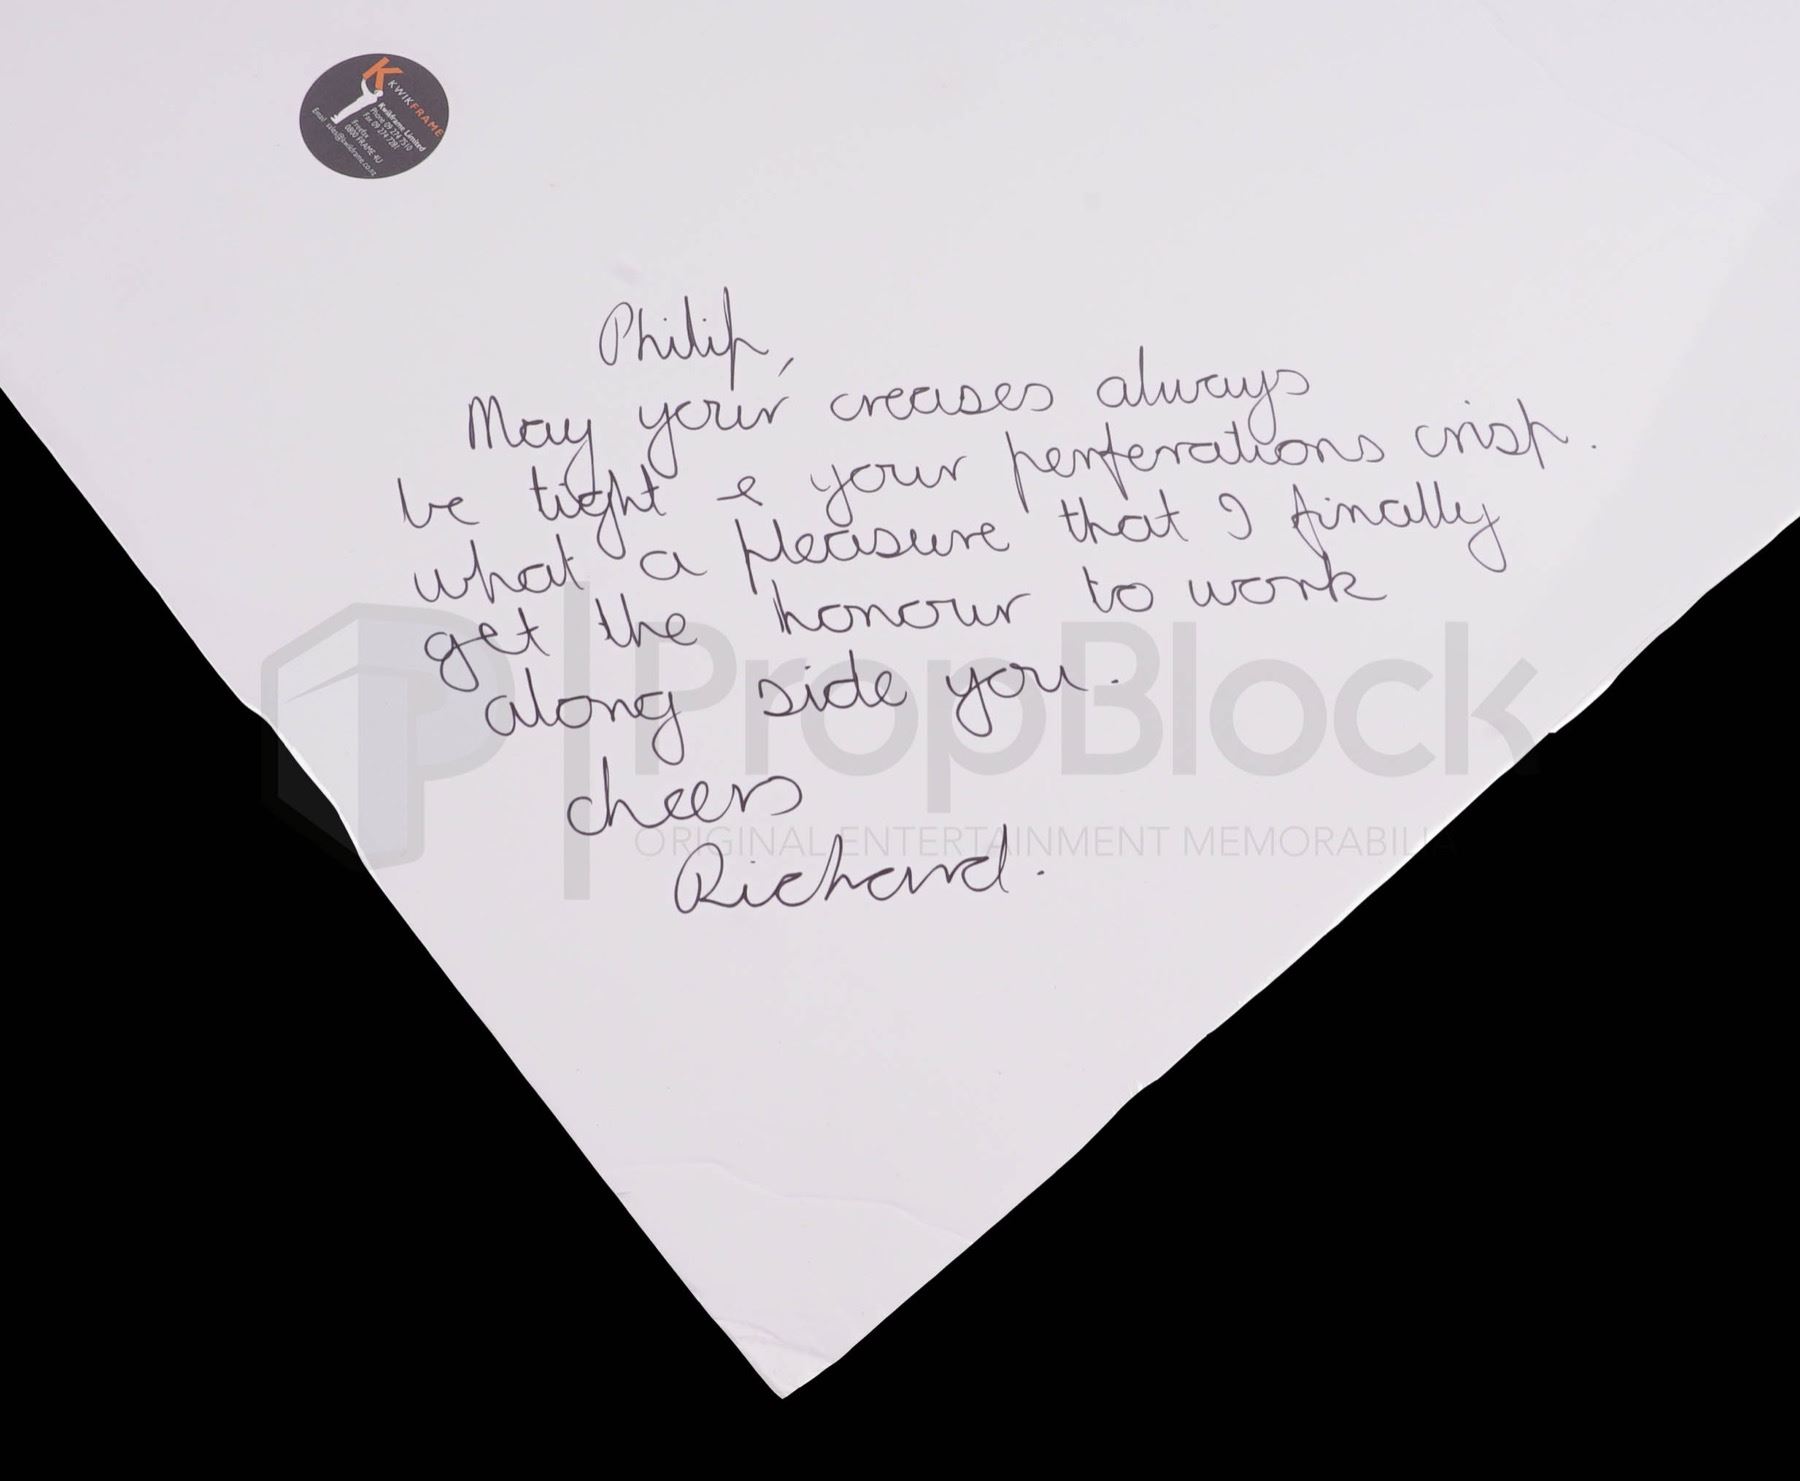 K KWIKFRAME
Kwikframe Limited
Phone 09 274 7510
Fax 09 274 7281
Freefax
0800 FRAME 4U
Email sales@kwikframe.co.nz
Philip,
May your creases always
be tight & your perferations crisp.
what a pleasure that I finally
get the honour to work
along side you.
cheers
Richard.
PropBlock
ORIGINAL ENTERTAINMENT MEMORABILIA